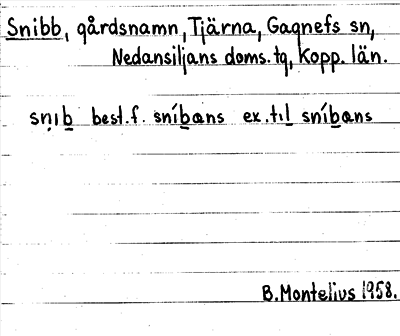 Snibb, gårdsnamn, Tjärna, Gagnefs sn,
Nedansiljans doms. tg, Kopp. län.
sṇıḇ best. f. sníḇans ex. tıl sníḇans
B. Montelius 1958.